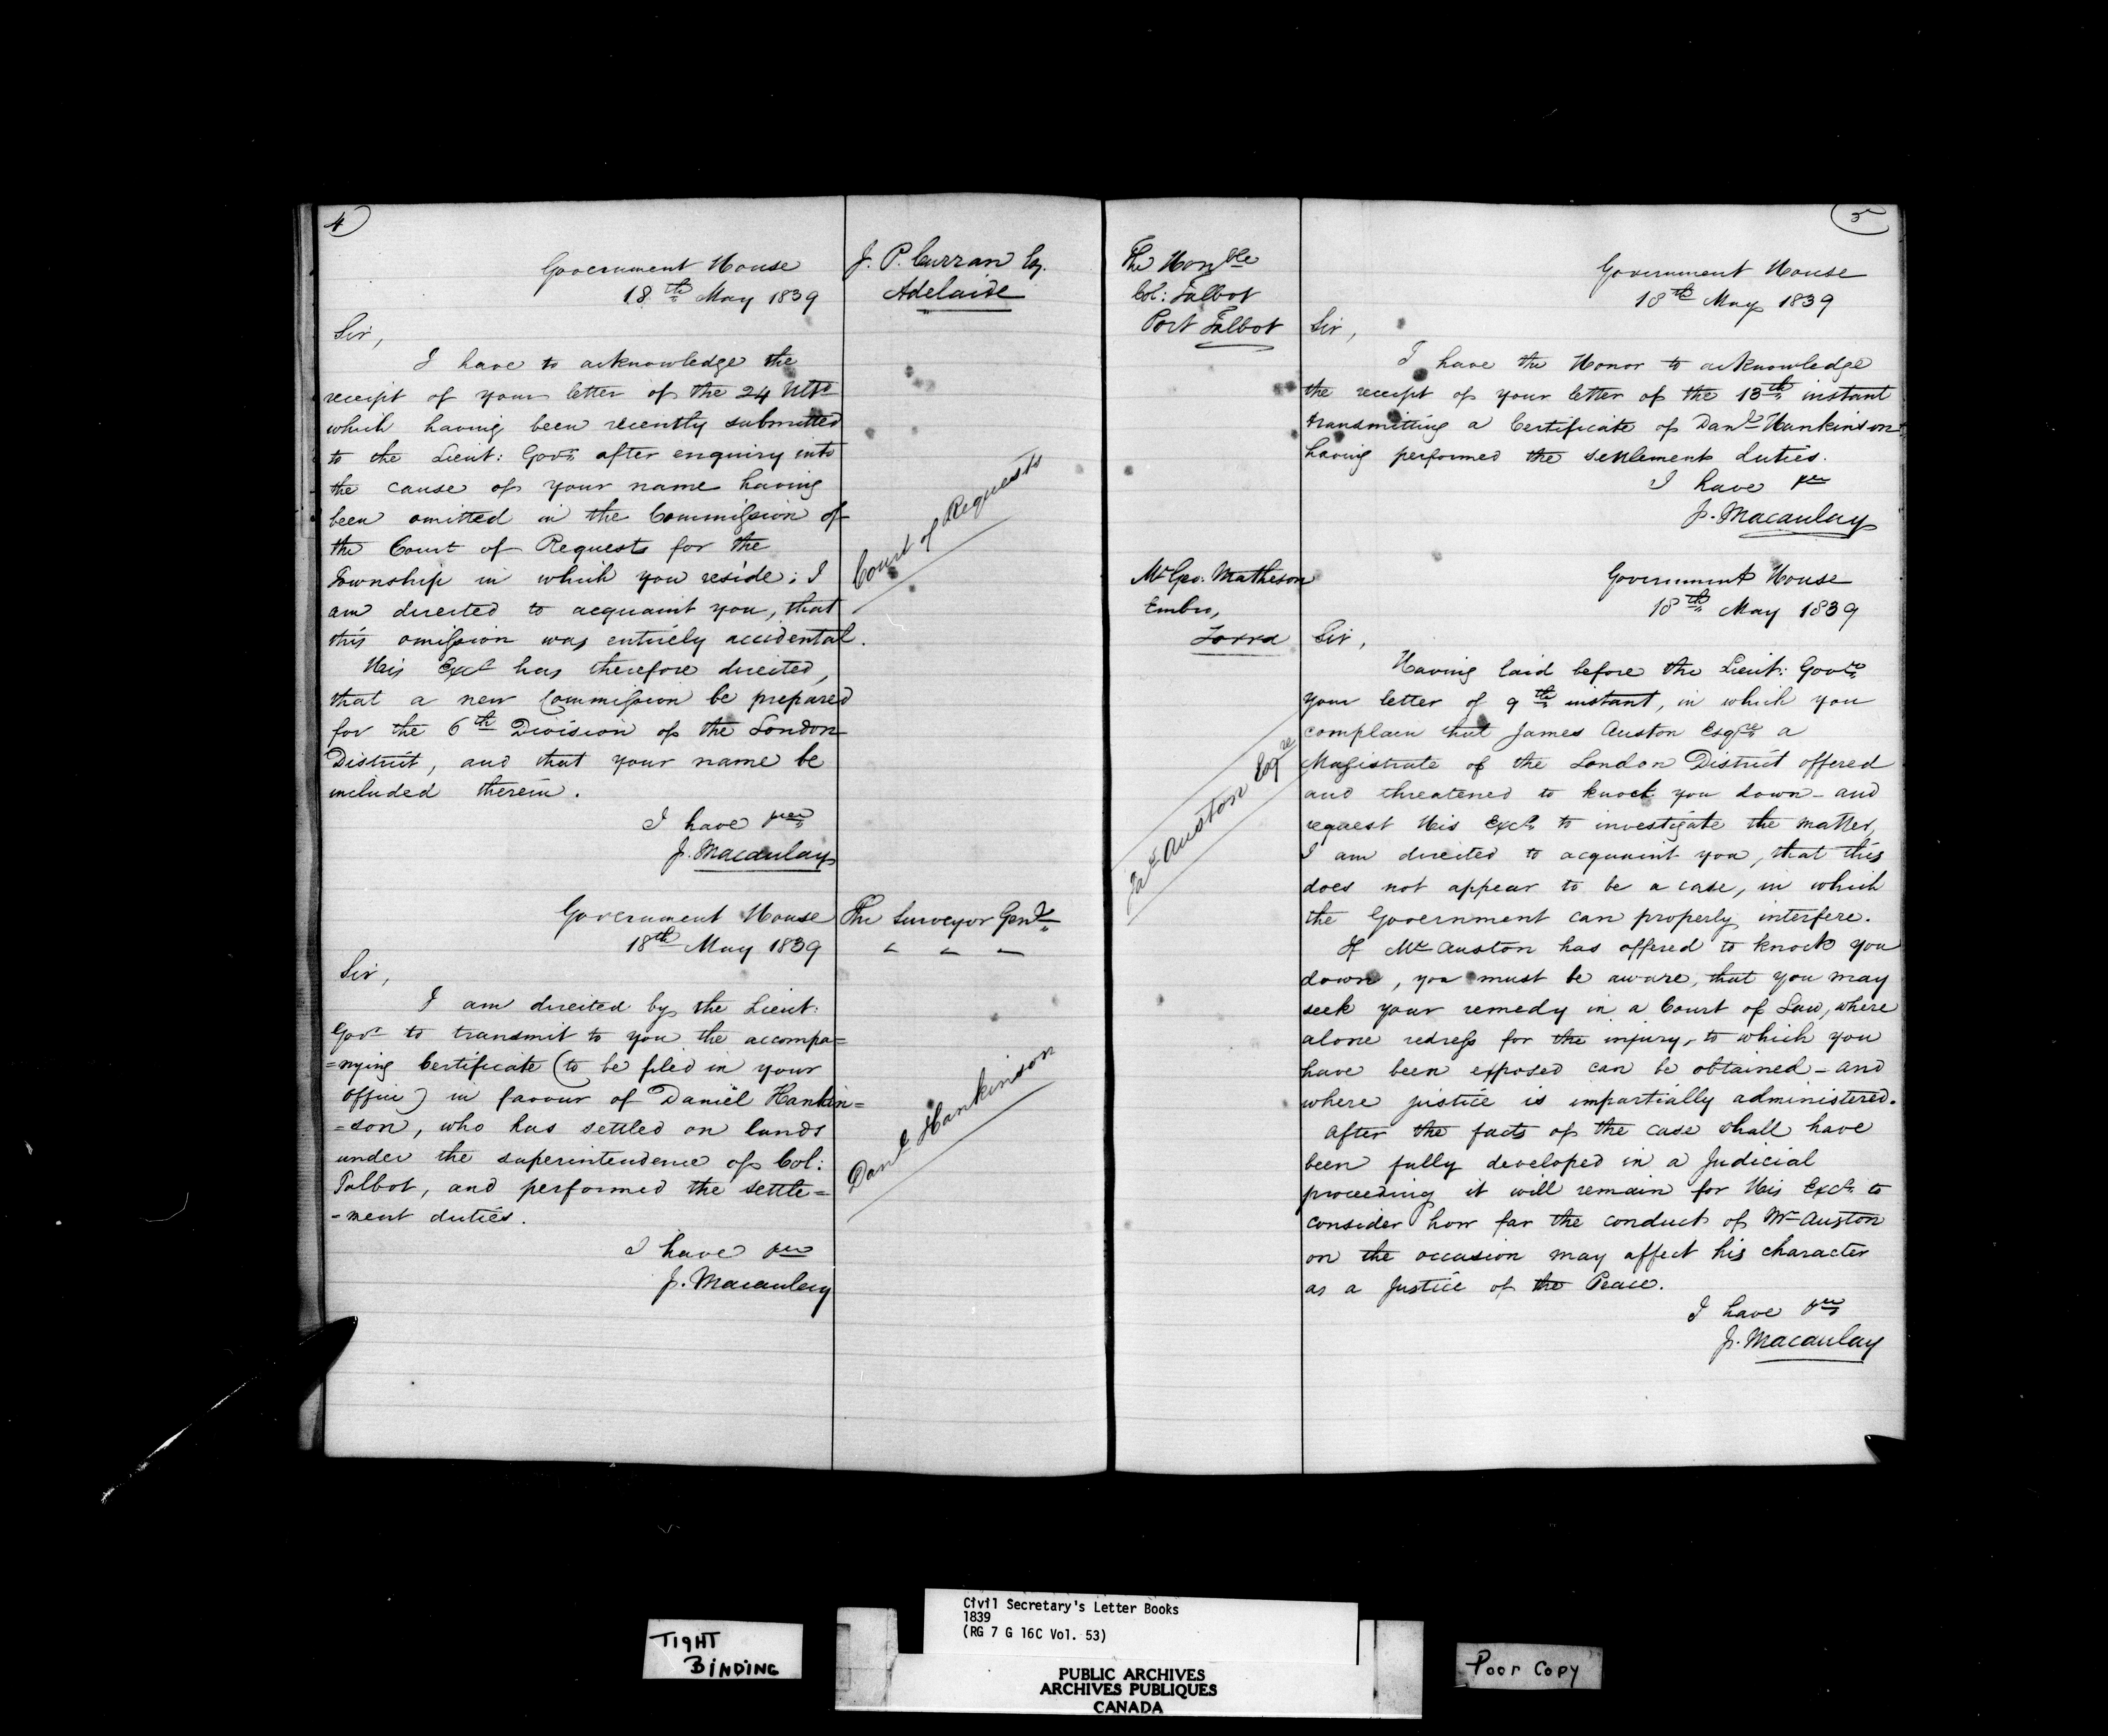 4
Government House
18th May 1839
J. P. Curran Esq.
Adelaide
Sir,
I have to acknowledge the
receipt of your letter of the 24 Ulto
which having been recently submitted
to the Lieut: Govr after enquiry into
the cause of your name having
been omitted in the Commission of
the Court of Requests for the
Township in which you reside; I
am directed to acquaint you, that
this omission was entirely accidental.
His Excy has therefore directed,
that a new Commission be prepared
for the 6th Division of the London
District, and that your name be
included therein.
I have &c
J. Macaulay
Court of Requests
Government House
18th May 1839
The Surveyor Genl
Sir,
I am directed by the Lieut:
Govr to transmit to you the accompa=
=nying Certificate (to be filed in your
office) in favour of Daniel Hankin=
=son, who has settled on lands
under the superintendence of Col:
Talbot, and performed the settle=
=ment duties.
I have &c
J. Macaulay
Danl Hankinson
5
The Honble
Col: Talbot
Port Talbot
Government House
18th May 1839
Sir,
I have the Honor to acknowledge
the receipt of your letter of the 13th instant
transmitting a Certificate of Danl Hankinson
having performed the settlement duties.
I have &c
J. Macaulay
Mr Geo: Matheson
Embro,
Zorra
Government House
18th May 1839
Sir,
Having laid before the Lieut: Govr
your letter of 9th instant, in which you
complain that James Auston Esqre a
Magistrate of the London District offered
and threatened to knock you down - and
request His Excy to investigate the matter,
I am directed to acquaint you, that this
does not appear to be a case, in which
the Government can properly interfere.
If Mr Auston has offered to knock you
down, you must be aware, that you may
seek your remedy in a Court of Law, where
alone redress for the injury, to which you
have been exposed can be obtained - and
where justice is impartially administered.
After the facts of the case shall have
been fully developed in a Judicial
proceeding it will remain for His Excy to
consider how far the conduct of Mr Auston
on the occasion may affect his character
as a Justice of the Peace.
I have &c
J. Macaulay
Jas Auston Esqre
TIGHT
BINDING
Civil Secretary's Letter Books
1839
(RG 7 G 16C Vol. 53)
PUBLIC ARCHIVES
ARCHIVES PUBLIQUES
CANADA
Poor Copy